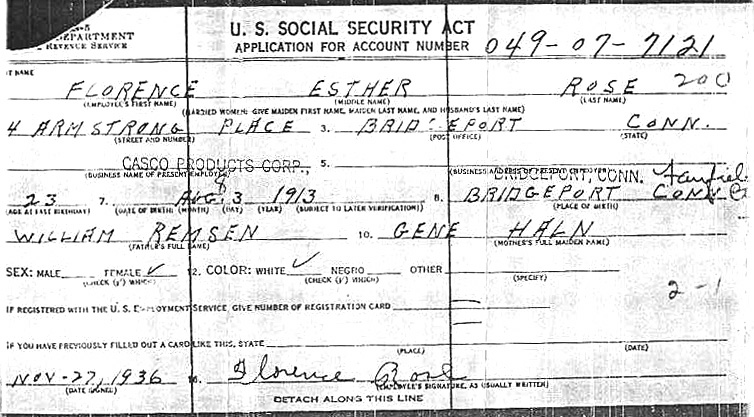 DEPARTMENT
REVENUE SERVICE
U. S. SOCIAL SECURITY ACT
APPLICATION FOR ACCOUNT NUMBER 049-07-7121
FLORENCE ESTHER ROSE 200
(EMPLOYEE'S FIRST NAME) (MIDDLE NAME) (LAST NAME)
(MARRIED WOMEN: GIVE MAIDEN FIRST NAME, MAIDEN LAST NAME, AND HUSBAND'S LAST NAME)
4 ARMSTRONG PLACE 3. BRIDGEPORT CONN.
(STREET AND NUMBER) (POST OFFICE) (STATE)
CASCO PRODUCTS CORP., 5. BRIDGEPORT, CONN.
(BUSINESS NAME OF PRESENT EMPLOYER) (BUSINESS ADDRESS OF PRESENT EMPLOYER)
23 7. AUG. 8 3 1913 8. BRIDGEPORT CONN
(AGE AT LAST BIRTHDAY) (DATE OF BIRTH: (MONTH) (DAY) (YEAR) (SUBJECT TO LATER VERIFICATION)) (PLACE OF BIRTH)
WILLIAM REMSEN 10. GENE HALN
(FATHER'S FULL NAME) (MOTHER'S FULL MAIDEN NAME)
SEX: MALE FEMALE ✓ 12. COLOR: WHITE ✓ NEGRO OTHER
(CHECK (✓) WHICH) (CHECK (✓) WHICH) (SPECIFY)
2-1
IF REGISTERED WITH THE U. S. EMPLOYMENT SERVICE, GIVE NUMBER OF REGISTRATION CARD
IF YOU HAVE PREVIOUSLY FILLED OUT A CARD LIKE THIS, STATE
(PLACE) (DATE)
NOV-27, 1936 16. Florence Rose
(DATE SIGNED) (EMPLOYEE'S SIGNATURE, AS USUALLY WRITTEN)
DETACH ALONG THIS LINE